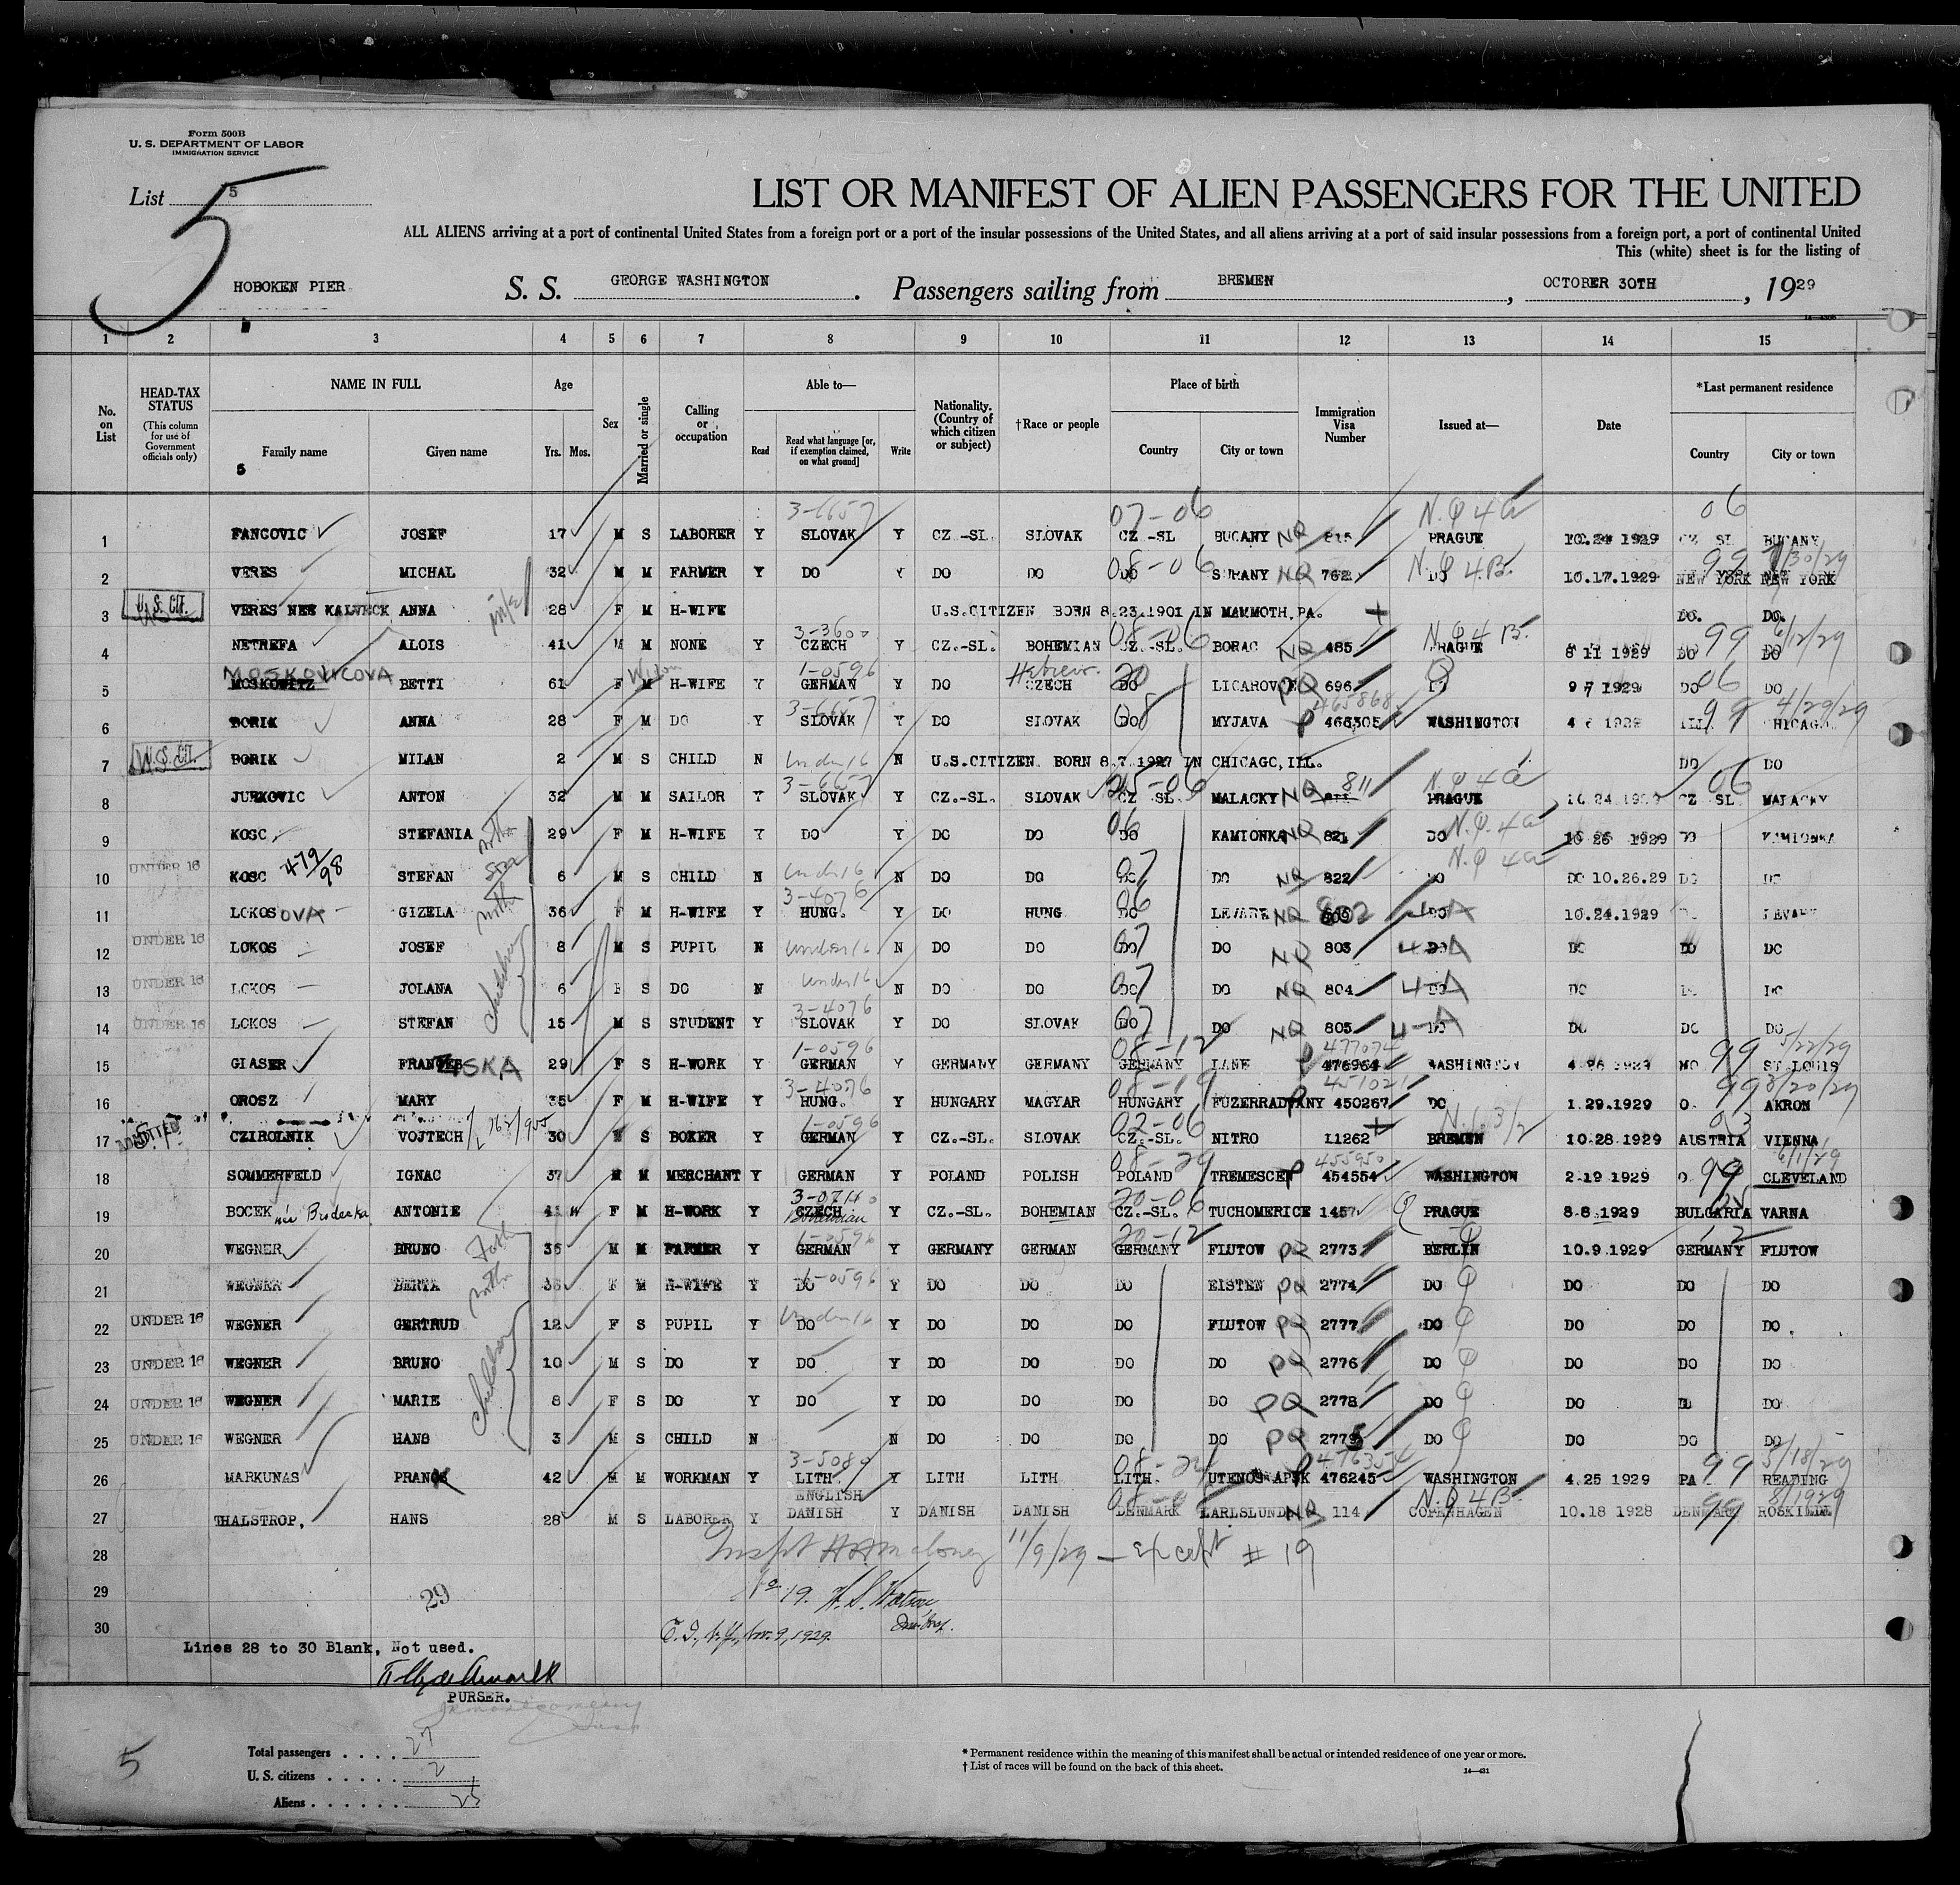 Form 500B
U. S. DEPARTMENT OF LABOR
IMMIGRATION SERVICE
List 5
5
LIST OR MANIFEST OF ALIEN PASSENGERS FOR THE UNITED
ALL ALIENS arriving at a port of continental United States from a foreign port or a port of the insular possessions of the United States, and all aliens arriving at a port of said insular possessions from a foreign port, a port of continental United
This (white) sheet is for the listing of
HOBOKEN PIER S. S. GEORGE WASHINGTON . Passengers sailing from BREMEN , OCTOBER 30TH , 1929
1 2 3 4 5 6 7 8 9 10 11 12 13 14 15
No. on List
HEAD-TAX STATUS (This column for use of Government officials only)
NAME IN FULL Family name Given name
5
Age Yrs. Mos.
Sex
Married or single
Calling or occupation
Able to— Read Read what language [or, if exemption claimed, on what ground] Write
Nationality. (Country of which citizen or subject)
†Race or people
Place of birth Country City or town
Immigration Visa Number
Issued at—
Date
*Last permanent residence Country City or town
3-6657 07-06 N.Q 4a 06
1 FANCOVIC JOSEF 17 M S LABORER Y SLOVAK Y CZ.-SL. SLOVAK CZ.-SL BUCANY NQ 815 PRAGUE 10.24 1929 CZ SL BUCANY
08-06 N.Q 4B. 99
2 VERES MICHAL 32 M M FARMER Y DO Y DO DO DO SURANY NQ 762 DO 10.17.1929 NEW YORK NEW YORK
3 U.S. CIT. VERES NEE KALVECK ANNA 28 F M H-WIFE U.S.CITIZEN BORN 8.23.1901 IN MAMMOTH,PA. DO. DO.
3-3600 08-06 N.Q 4B. 99 6/12/29
4 NETREFA ALOIS 41 M M NONE Y CZECH Y CZ.-SL. BOHEMIAN CZ.-SL. BORAC NQ 485 PRAGUE 8 11 1929 DO DO
MOSKOVICOVA 1-0596 Hebrew. 20 06
5 MOSKOWITZ BETTI 61 F M H-WIFE Y GERMAN Y DO CZECH DO PQ 696 9 7 1929 DO DO
3-6657 465868 99 4/29/29
6 BORIK ANNA 28 F M DO Y SLOVAK Y DO SLOVAK DO 08 MYJAVA P 466305 WASHINGTON ILL CHICAGO
7 U.S. CIT. BORIK MILAN 2 M S CHILD N Under 16 N U.S.CITIZEN BORN 8.7.1927 IN CHICAGO,ILL. DO DO
3-6657 811 N.Q 4a 06
8 JURKOVIC ANTON 32 M M SAILOR Y SLOVAK Y CZ.-SL. SLOVAK CZ SL. MALACKY NQ PRAGUE 10 24.1929 CZ SL MALACKY
9 KOSC STEFANIA 29 F M H-WIFE Y DO Y DO DO DO 06 KAMIONKA NQ 821 DO N.Q. 4a 10 26 1929 DO KAMIONKA
10 UNDER 16 KOSC 479/98 STEFAN 6 M S CHILD N Under 16 N DO DO DO 07 DO NQ 822 DO N.Q 4a DO 10.26.29 DO DO
3-4076
11 LOKOS OVA GIZELA 36 F M H-WIFE Y HUNG. Y DO HUNG DO 06 LEVARE NQ 802 DO 4A 10.24.1929 DO LEVARE
12 UNDER 16 LOKOS JOSEF 8 M S PUPIL N Under 16 N DO DO DO 07 DO NQ 803 DO 4-A DO DO DO
13 UNDER 16 LOKOS JOLANA 6 F S DO N Under 16 N DO DO DO 07 DO NQ 804 DO 4-A DO DO DO
3-4076
14 UNDER 16 LOKOS STEFAN 15 M S STUDENT Y SLOVAK Y DO SLOVAK DO 07 DO NQ 805 DO 4-A DO DO DO
1-0596 08-12 477074 99 5/22/29
15 GLASER FRANZISKA 29 F S H-WORK Y GERMAN Y GERMANY GERMANY GERMANY LANE P 476964 WASHINGTON 4 26 1929 MO ST.LOUIS
3-4076 08-19 451021 99 8/20/29
16 OROSZ MARY 35 F M H-WIFE Y HUNG. Y HUNGARY MAGYAR HUNGARY FUZERRADVANY 450267 DO 1.29.1929 O. AKRON
1-0596 02-06 03
17 ADMITTED CZIROLNIK VOJTECH 30 M S BOXER Y GERMAN Y CZ.-SL. SLOVAK CZ.-SL. NITRO 11262 BREMEN 10.28 1929 AUSTRIA VIENNA
08-24 455950 99 6/1/29
18 SOMMERFELD IGNAC 37 M M MERCHANT Y GERMAN Y POLAND POLISH POLAND TREMESCEN P 454554 WASHINGTON 2-19 1929 O. CLEVELAND
3-0710 20-06 25
19 BOCEK ANTONIE 41 F M H-WORK Y CZECH Bohemian Y CZ.-SL. BOHEMIAN CZ.-SL. TUCHOMERICE 1457 Q PRAGUE 8-8.1929 BULGARIA VARNA
1-0596 20-12 12
20 WEGNER BRUNO 36 M M FARMER Y GERMAN Y GERMANY GERMAN GERMANY FLUTOW PQ 2773 BERLIN Q 10.9.1929 GERMANY FLUTOW
21 WEGNER BERTA 36 F M H-WIFE Y DO 1-0596 Y DO DO DO EISTEN PQ 2774 DO Q DO DO DO
22 UNDER 16 WEGNER GERTRUD 12 F S PUPIL Y DO Under 16 Y DO DO DO FLUTOW PQ 2777 DO Q DO DO DO
23 UNDER 16 WEGNER BRUNO 10 M S DO Y DO Y DO DO DO DO PQ 2776 DO Q DO DO DO
24 UNDER 16 WEGNER MARIE 8 F S DO Y DO Y DO DO DO DO PQ 2778 DO Q DO DO DO
25 UNDER 16 WEGNER HANS 3 M S CHILD N N DO DO DO DO PQ 2775 DO Q DO DO DO
3-5080 08-24 476354 99 5/18/29
26 MARKUNAS PRANK 42 M M WORKMAN Y LITH. Y LITH LITH LITH. 476245 WASHINGTON 4.25 1929 PA READING
ENGLISH N.Q 4B. 99
27 THALSTROP, HANS 28 M S LABORER Y DANISH Y DANISH DANISH DENMARK KARLSLUND NQ 114 COPENHAGEN 10.18 1928 DENMARK ROSKILDE
28 11/9/29 — except # 19
29 29 No 19.
30 Nov. 9, 1929.
Lines 28 to 30 Blank, Not used.
PURSER.
5
Total passengers . . . . 27
U. S. citizens . . . . . 2
Aliens . . . . . . 25
* Permanent residence within the meaning of this manifest shall be actual or intended residence of one year or more.
† List of races will be found on the back of this sheet.
14—431